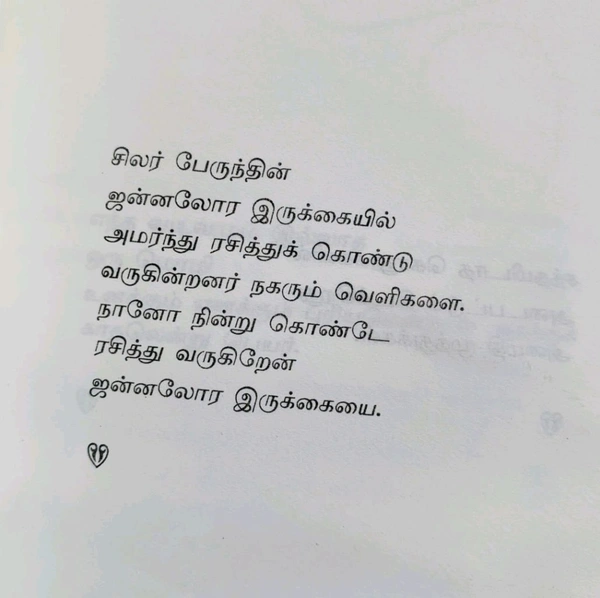 சிலர் பேருந்தின்
ஜன்னலோர இருக்கையில்
அமர்ந்து ரசித்துக் கொண்டு
வருகின்றனர் நகரும் வெளிகளை.
நானோ நின்று கொண்டே
ரசித்து வருகிறேன்
ஜன்னலோர இருக்கையை.